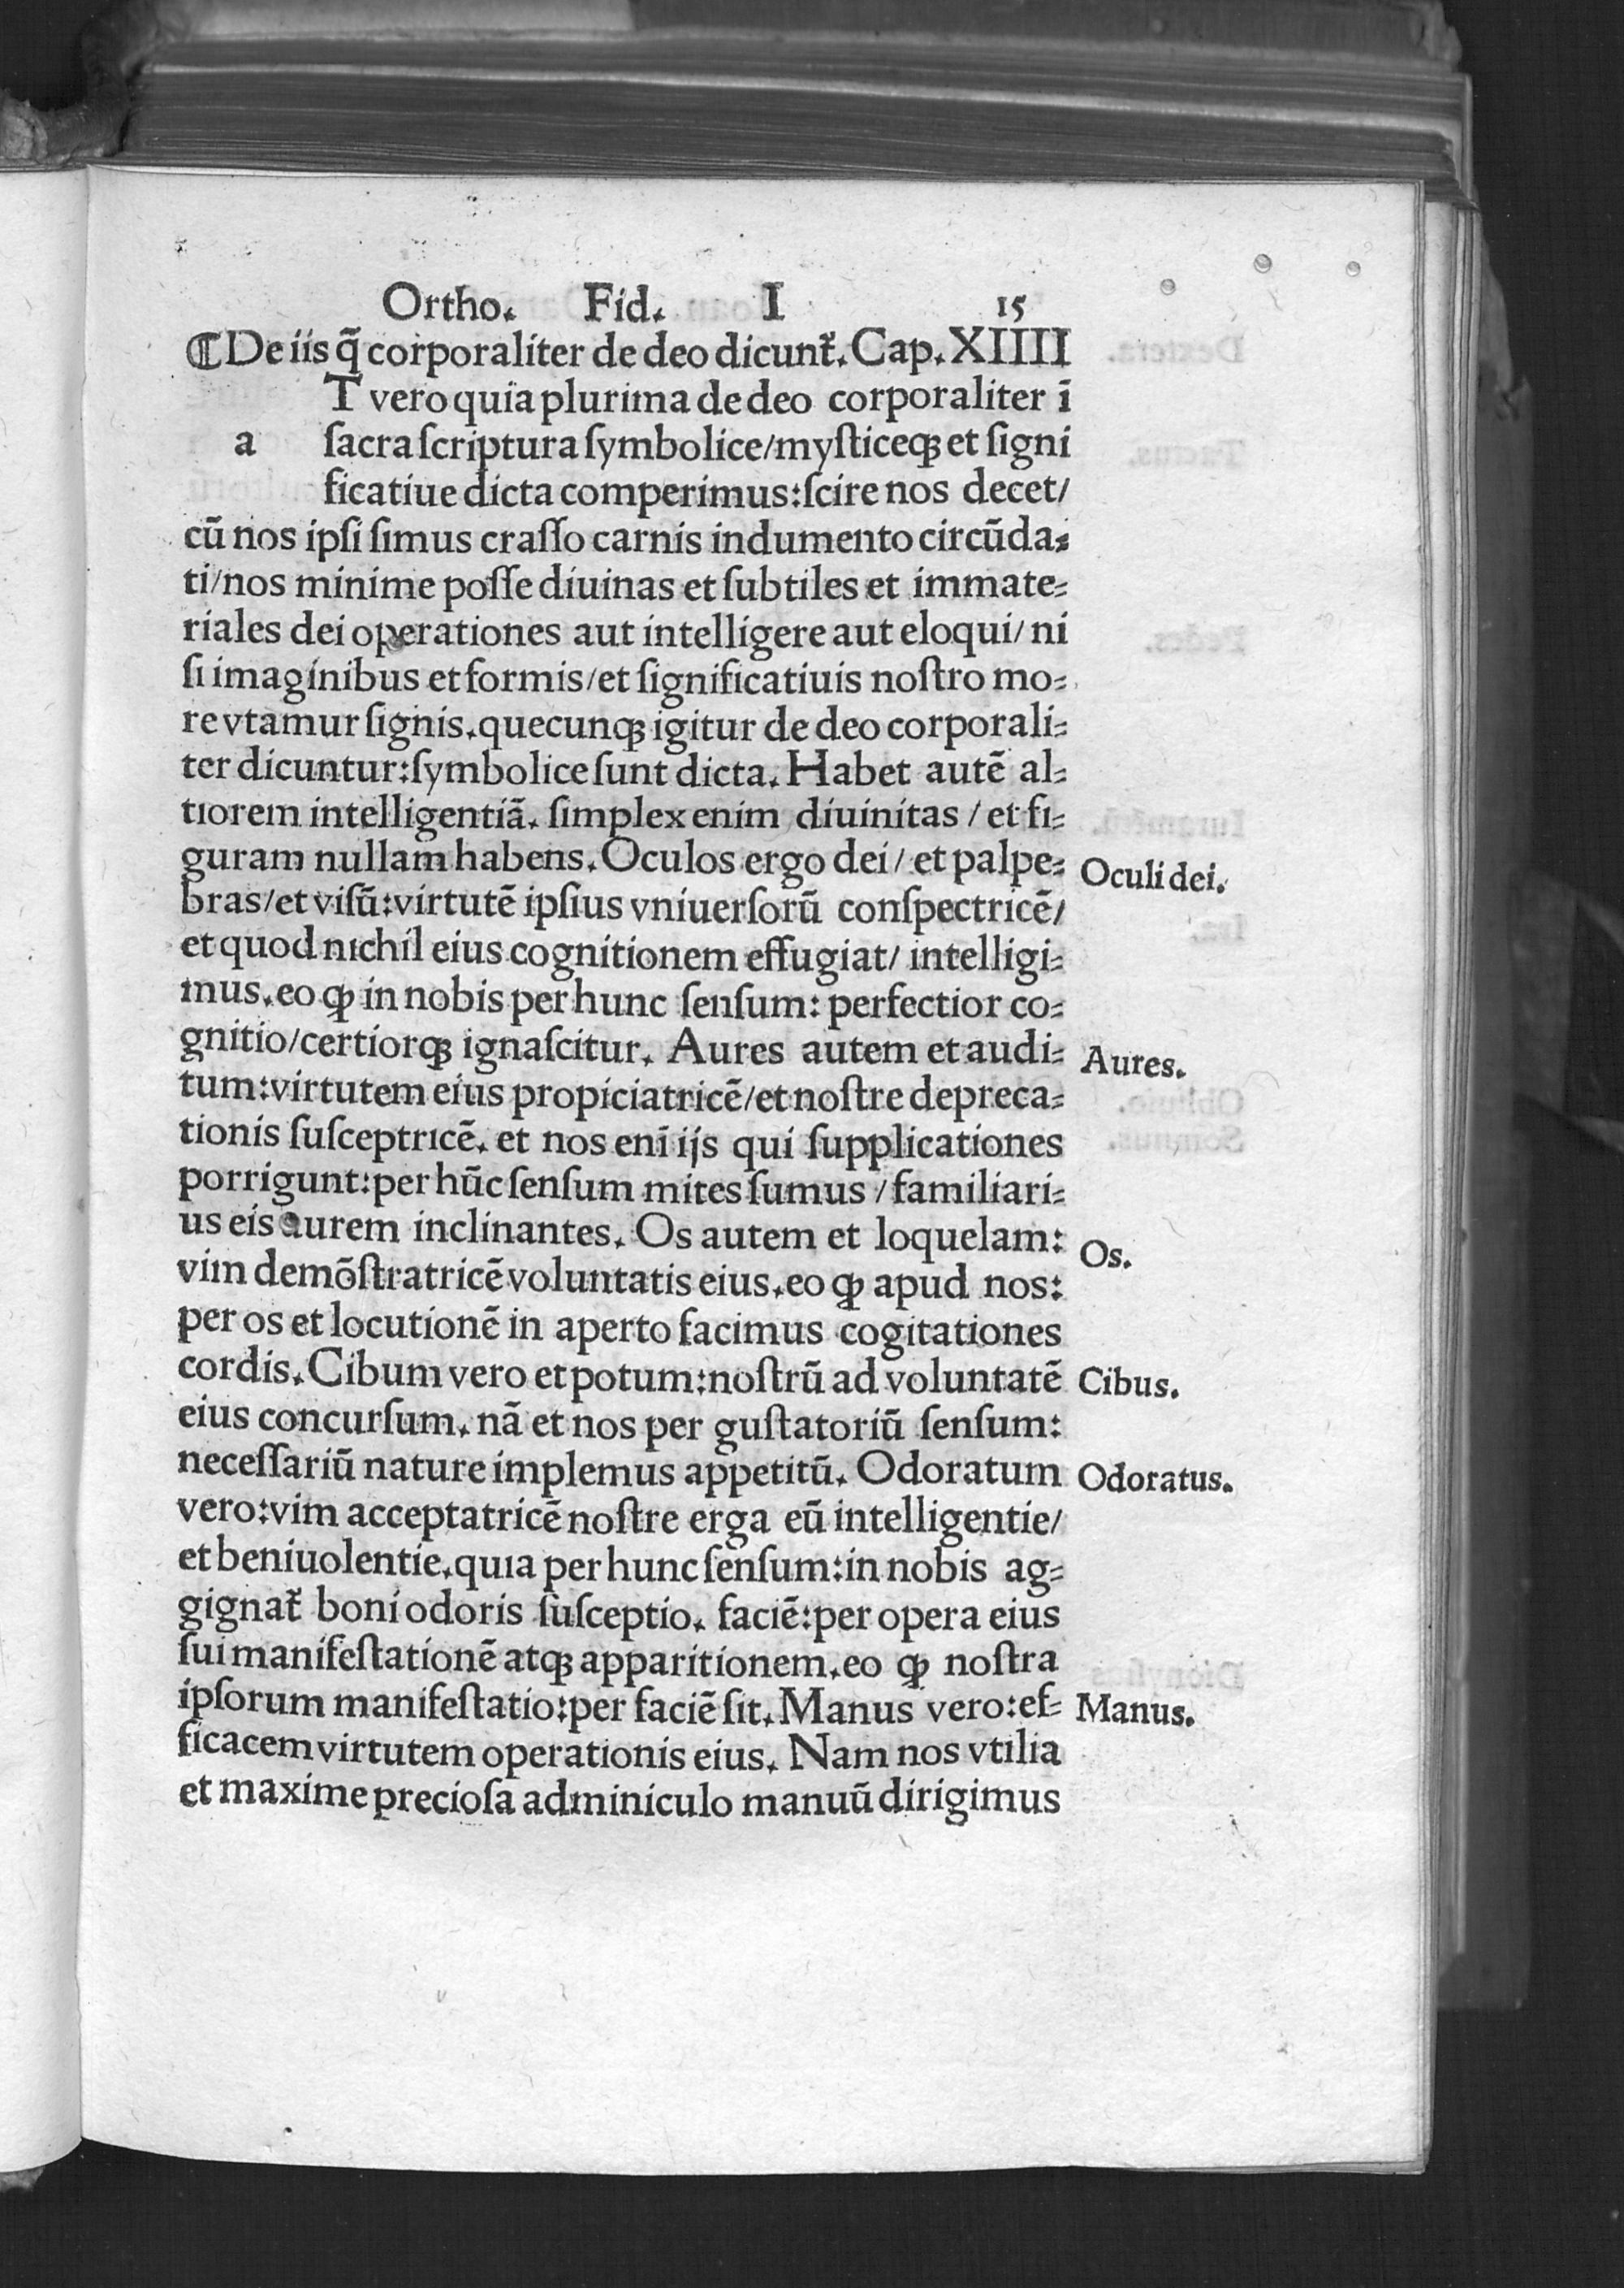 Ortho. Fid. I 15
⸿De iis q̃ corporaliter de deo dicunt᷑. Cap. XIIII
T vero quia plurima de deo corporaliter ī
a ſacra ſcriptura ſymbolice/myſticeqꝫ et ſigni
ficatiue dicta comperimus:ſcire nos decet/
cū nos ipſi ſimus craſſo carnis indumento circūda⸗
ti/nos minime poſſe diuinas et ſubtiles et immate⸗
riales dei operationes aut intelligere aut eloqui/ni
ſi imaginibus et formis/et ſignificatiuis noſtro mo⸗
re vtamur ſignis.quecunqꝫ igitur de deo corporali⸗
ter dicuntur:ſymbolice ſunt dicta. Habet autē al⸗
tiorem intelligentiā. ſimplex enim diuinitas / et fi⸗
guram nullam habens. Oculos ergo dei/ et palpe⸗
Oculi dei.
bras/et viſū:virtutē ipſius vniuerſorū conſpectricē/
et quod nichil eius cognitionem effugiat/ intelligi⸗
mus.eo ꝙ in nobis per hunc ſenſum: perfectior co⸗
gnitio/certiorqꝫ ignaſcitur. Aures autem et audi⸗
Aures.
tum:virtutem eius propiciatricē/et noſtre depreca⸗
tionis ſuſceptricē. et nos enī ijs qui ſupplicationes
porrigunt:per hūc ſenſum mites ſumus /familiari⸗
us eis aurem inclinantes. Os autem et loquelam:
Os.
vim demōſtratricē voluntatis eius.eo ꝙ apud nos:
per os et locutionē in aperto facimus cogitationes
cordis. Cibum vero et potum:noſtrū ad voluntatē
Cibus.
eius concurſum. nā et nos per guſtatoriū ſenſum:
neceſſariū nature implemus appetitū. Odoratum
Odoratus.
vero:vim acceptatricē noſtre erga eū intelligentie/
et beniuolentie.quia per hunc ſenſum:in nobis ag⸗
gignat᷑ boni odoris ſuſceptio. faciē:per opera eius
ſui manifeſtationē atqꝫ apparitionem.eo ꝙ noſtra
ipſorum manifeſtatio:per faciē ſit. Manus vero:ef⸗
Manus.
ficacem virtutem operationis eius. Nam nos vtilia
et maxime precioſa adminiculo manuū dirigimus